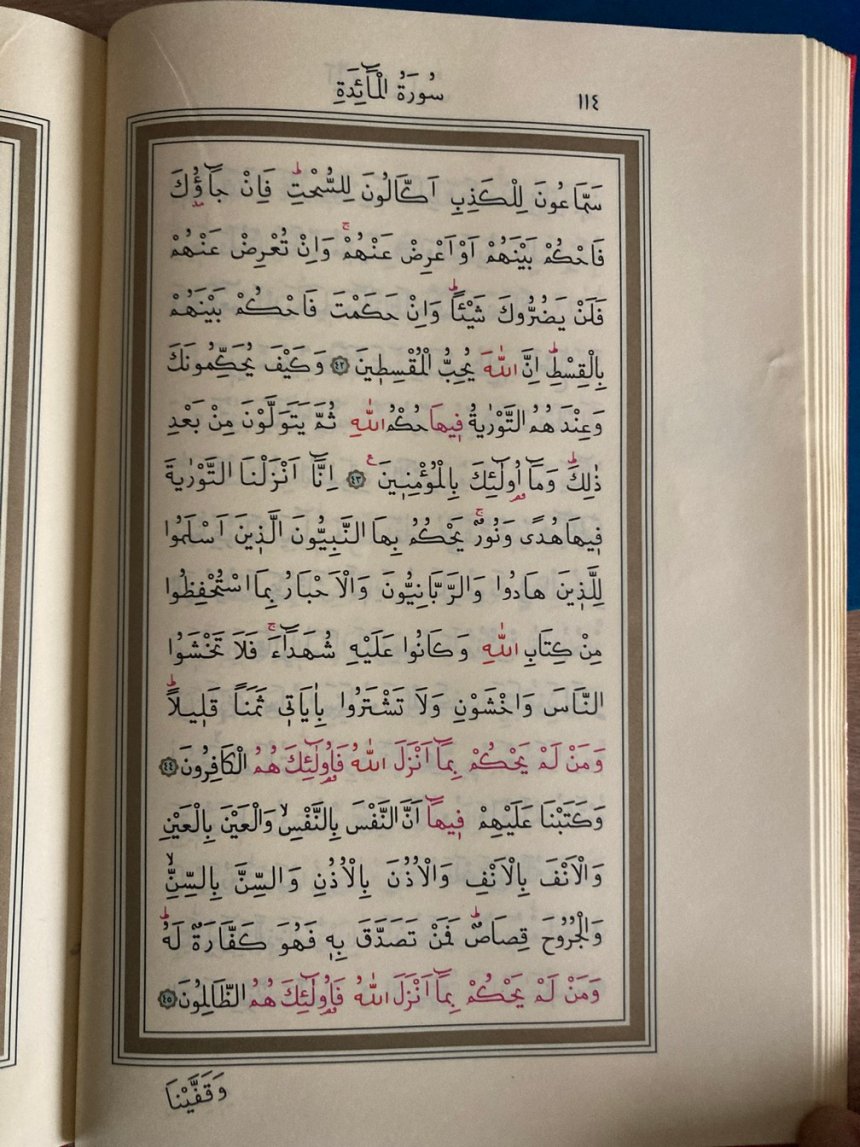 ١١٤
سُورَةُ الْمَٓائِدَةِ
سَمَّاعُونَ لِلْكَذِبِ اَكَّالُونَ لِلسُّحْتِۜ فَاِنْ جَٓاؤُ۫كَ
فَاحْكُمْ بَيْنَهُمْ اَوْ اَعْرِضْ عَنْهُمْۚ وَاِنْ تُعْرِضْ عَنْهُمْ
فَلَنْ يَضُرُّوكَ شَيْـًٔاۜ وَاِنْ حَكَمْتَ فَاحْكُمْ بَيْنَهُمْ
بِالْقِسْطِۜ اِنَّ اللّٰهَ يُحِبُّ الْمُقْسِط۪ينَ ﴿٤٢﴾ وَكَيْفَ يُحَكِّمُونَكَ
وَعِنْدَهُمُ التَّوْرٰيةُ ف۪يهَا حُكْمُ اللّٰهِ ثُمَّ يَتَوَلَّوْنَ مِنْ بَعْدِ
ذٰلِكَۜ وَمَٓا اُو۬لٰٓئِكَ بِالْمُؤْمِن۪ينَ ع ﴿٤٣﴾ اِنَّٓا اَنْزَلْنَا التَّوْرٰيةَ
ف۪يهَا هُدًى وَنُورٌۚ يَحْكُمُ بِهَا النَّبِيُّونَ الَّذ۪ينَ اَسْلَمُوا
لِلَّذ۪ينَ هَادُوا وَالرَّبَّانِيُّونَ وَالْاَحْبَارُ بِمَا اسْتُحْفِظُوا
مِنْ كِتَابِ اللّٰهِ وَكَانُوا عَلَيْهِ شُهَدَٓاءَۚ فَلَا تَخْشَوُا
النَّاسَ وَاخْشَوْنِ وَلَا تَشْتَرُوا بِاٰيَات۪ي ثَمَنًا قَل۪يلًاۜ
وَمَنْ لَمْ يَحْكُمْ بِمَٓا اَنْزَلَ اللّٰهُ فَاُو۬لٰٓئِكَ هُمُ الْكَافِرُونَ ﴿٤٤﴾
وَكَتَبْنَا عَلَيْهِمْ ف۪يهَٓا اَنَّ النَّفْسَ بِالنَّفْسِۙ وَالْعَيْنَ بِالْعَيْنِ
وَالْاَنْفَ بِالْاَنْفِ وَالْاُذُنَ بِالْاُذُنِ وَالسِّنَّ بِالسِّنِّۙ
وَالْجُرُوحَ قِصَاصٌۜ فَمَنْ تَصَدَّقَ بِه۪ فَهُوَ كَفَّارَةٌ لَهُۜ
وَمَنْ لَمْ يَحْكُمْ بِمَٓا اَنْزَلَ اللّٰهُ فَاُو۬لٰٓئِكَ هُمُ الظَّالِمُونَ ﴿٤٥﴾
وَقَفَّيْنَا